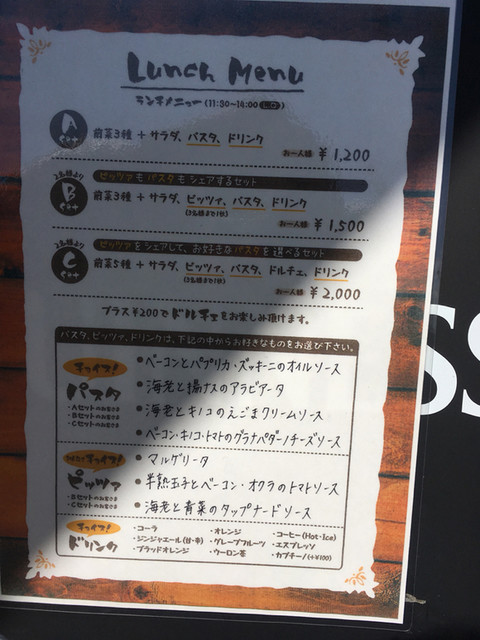 Lunch Menu
ランチメニュー (11:30~14:00 L.O)
A set
前菜3種 + サラダ、パスタ、ドリンク
お一人様 ¥1,200
2名様より
B set
ピッツァもパスタもシェアするセット
前菜3種 + サラダ、ピッツァ、パスタ、ドリンク
お一人様 ¥1,500
2名様より
C set
ピッツァをシェアして、お好きなパスタを選べるセット
前菜5種 + サラダ、ピッツァ、パスタ、ドルチェ、ドリンク
お一人様 ¥2,000
プラス¥200でドルチェをお楽しみ頂けます。
パスタ、ピッツァ、ドリンクは、下記の中からお好きなものをお選び下さい。
チョイス!
パスタ
・Aセットのお客さま
・Bセットのお客さま
・Cセットのお客さま
●ベーコンとパプリカ・ズッキーニのオイルソース
●海老と揚げナスのアラビアータ
●海老とキノコのえごまクリームソース
●ベーコン・キノコ・トマトのグラナパダーノチーズソース
チョイス!
ピッツァ
・Bセットのお客さま
・Cセットのお客さま
●マルゲリータ
●半熟玉子とベーコン・オクラのトマトソース
●海老と青菜のタップナードソース
チョイス!
ドリンク
・コーラ ・オレンジ ・コーヒー(Hot・Ice)
・ジンジャエール(甘・辛) ・グレープフルーツ ・エスプレッソ
・ブラッドオレンジ ・ウーロン茶 ・カプチーノ(+¥100)
SS